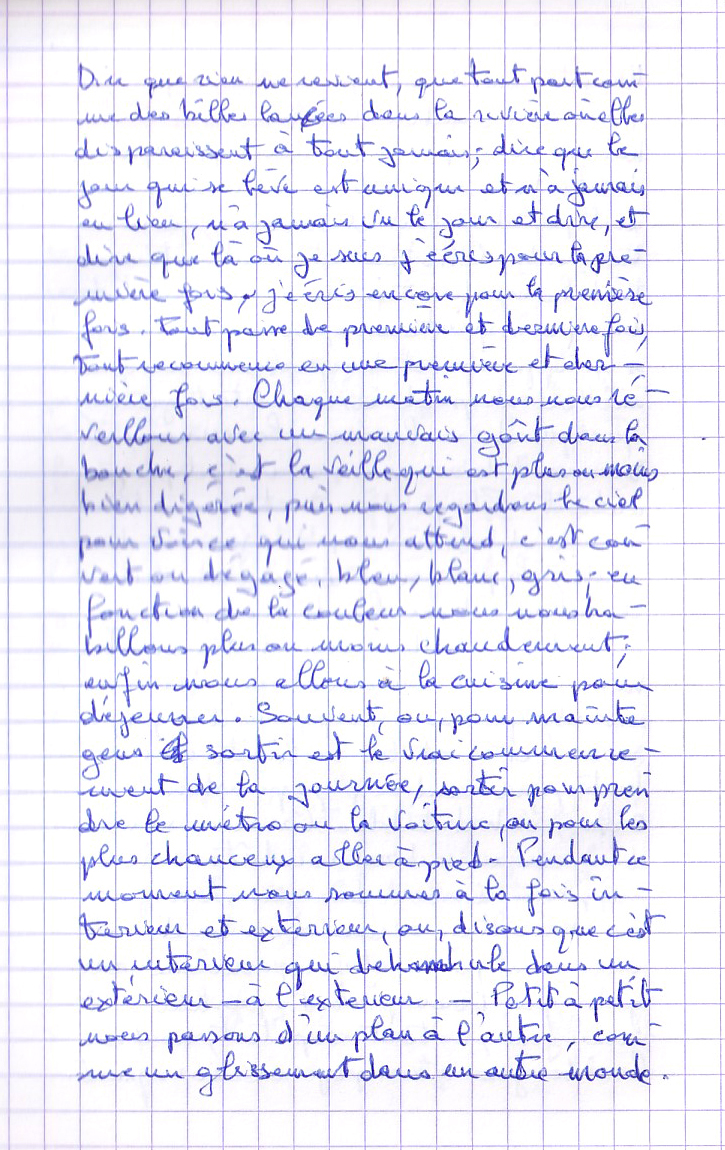 Dire que rien ne revient, que tout part com-
me des billes lancées dans la rivière où elles
disparaissent à tout jamais; dire que le
jour qui se lève est unique et n'a jamais
eu lieu, n'a jamais vu le jour et dire, et
dire que là où je suis j'écris pour la pre-
mière fois, j'écris encore pour la première
fois. Tout passe de première et dernière fois,
tout recommence en une première et der-
nière fois. Chaque matin nous nous ré-
veillons avec un mauvais goût dans la
bouche, c'est la veille qui est plus ou moins
bien digérée, puis nous regardons le ciel
pour voir ce qui nous attend, c'est cou-
vert ou dégagé, bleu, blanc, gris; en
fonction de la couleur nous nous ha-
billons plus ou moins chaudement;
enfin nous allons à la cuisine pour
déjeuner. Souvent, ou, pour mainte
gens sortir est le vrai commence-
ment de la journée, sortir pour pren
dre le métro ou la voiture, ou pour les
plus chanceux aller à pied. Pendant ce
moment nous sommes à la fois in-
térieur et extérieur, ou, disons que c'est
un intérieur qui déambule dans un
extérieur - à l'extérieur. - Petit à petit
nous passons d'un plan à l'autre, com-
me un glissement dans un autre monde.